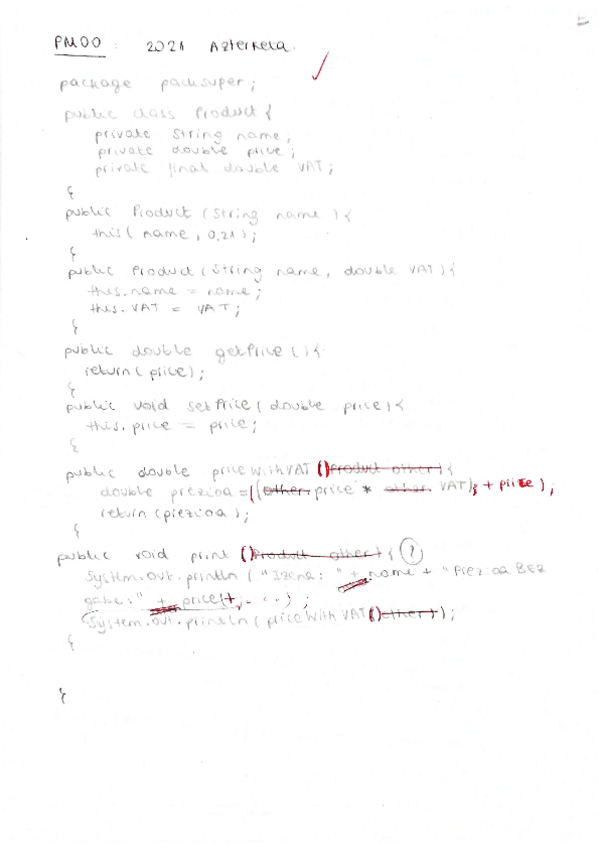 PMOO : 2021 Azterketa.
package packsuper;
public class Product {
private String name,
private double price;
private final double VAT;
}
public Product (String name) {
this( name, 0,21);
}
public Product (String name, double VAT) {
this.name = name;
this.VAT = VAT;
}
public double getPrice () {
return (price);
}
public void setPrice ( double price) {
this.price = price;
}
public double priceWithVAT () Product other) {
double prezioa = ((other. price * other. VAT); + price);
return (prezioa);
}
public void print () Product other) { ?
System.out.println ("Izena: " + name + "Prezioa BEZ
gabe:" + price(+, - ..) ;
System.out.println ( priceWithVAT () other));
}
}